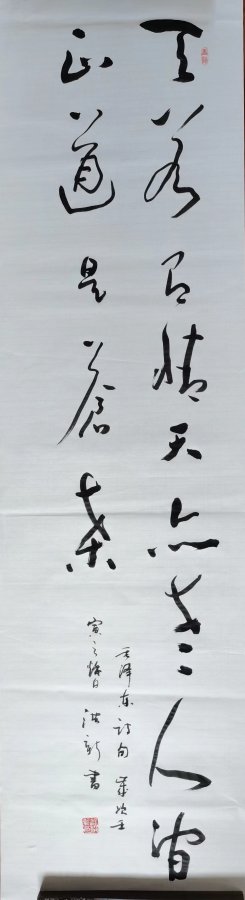 天若有情天亦老人间
正道是苍桑
毛泽东诗句 岁次壬
寅之秋日 洪新书